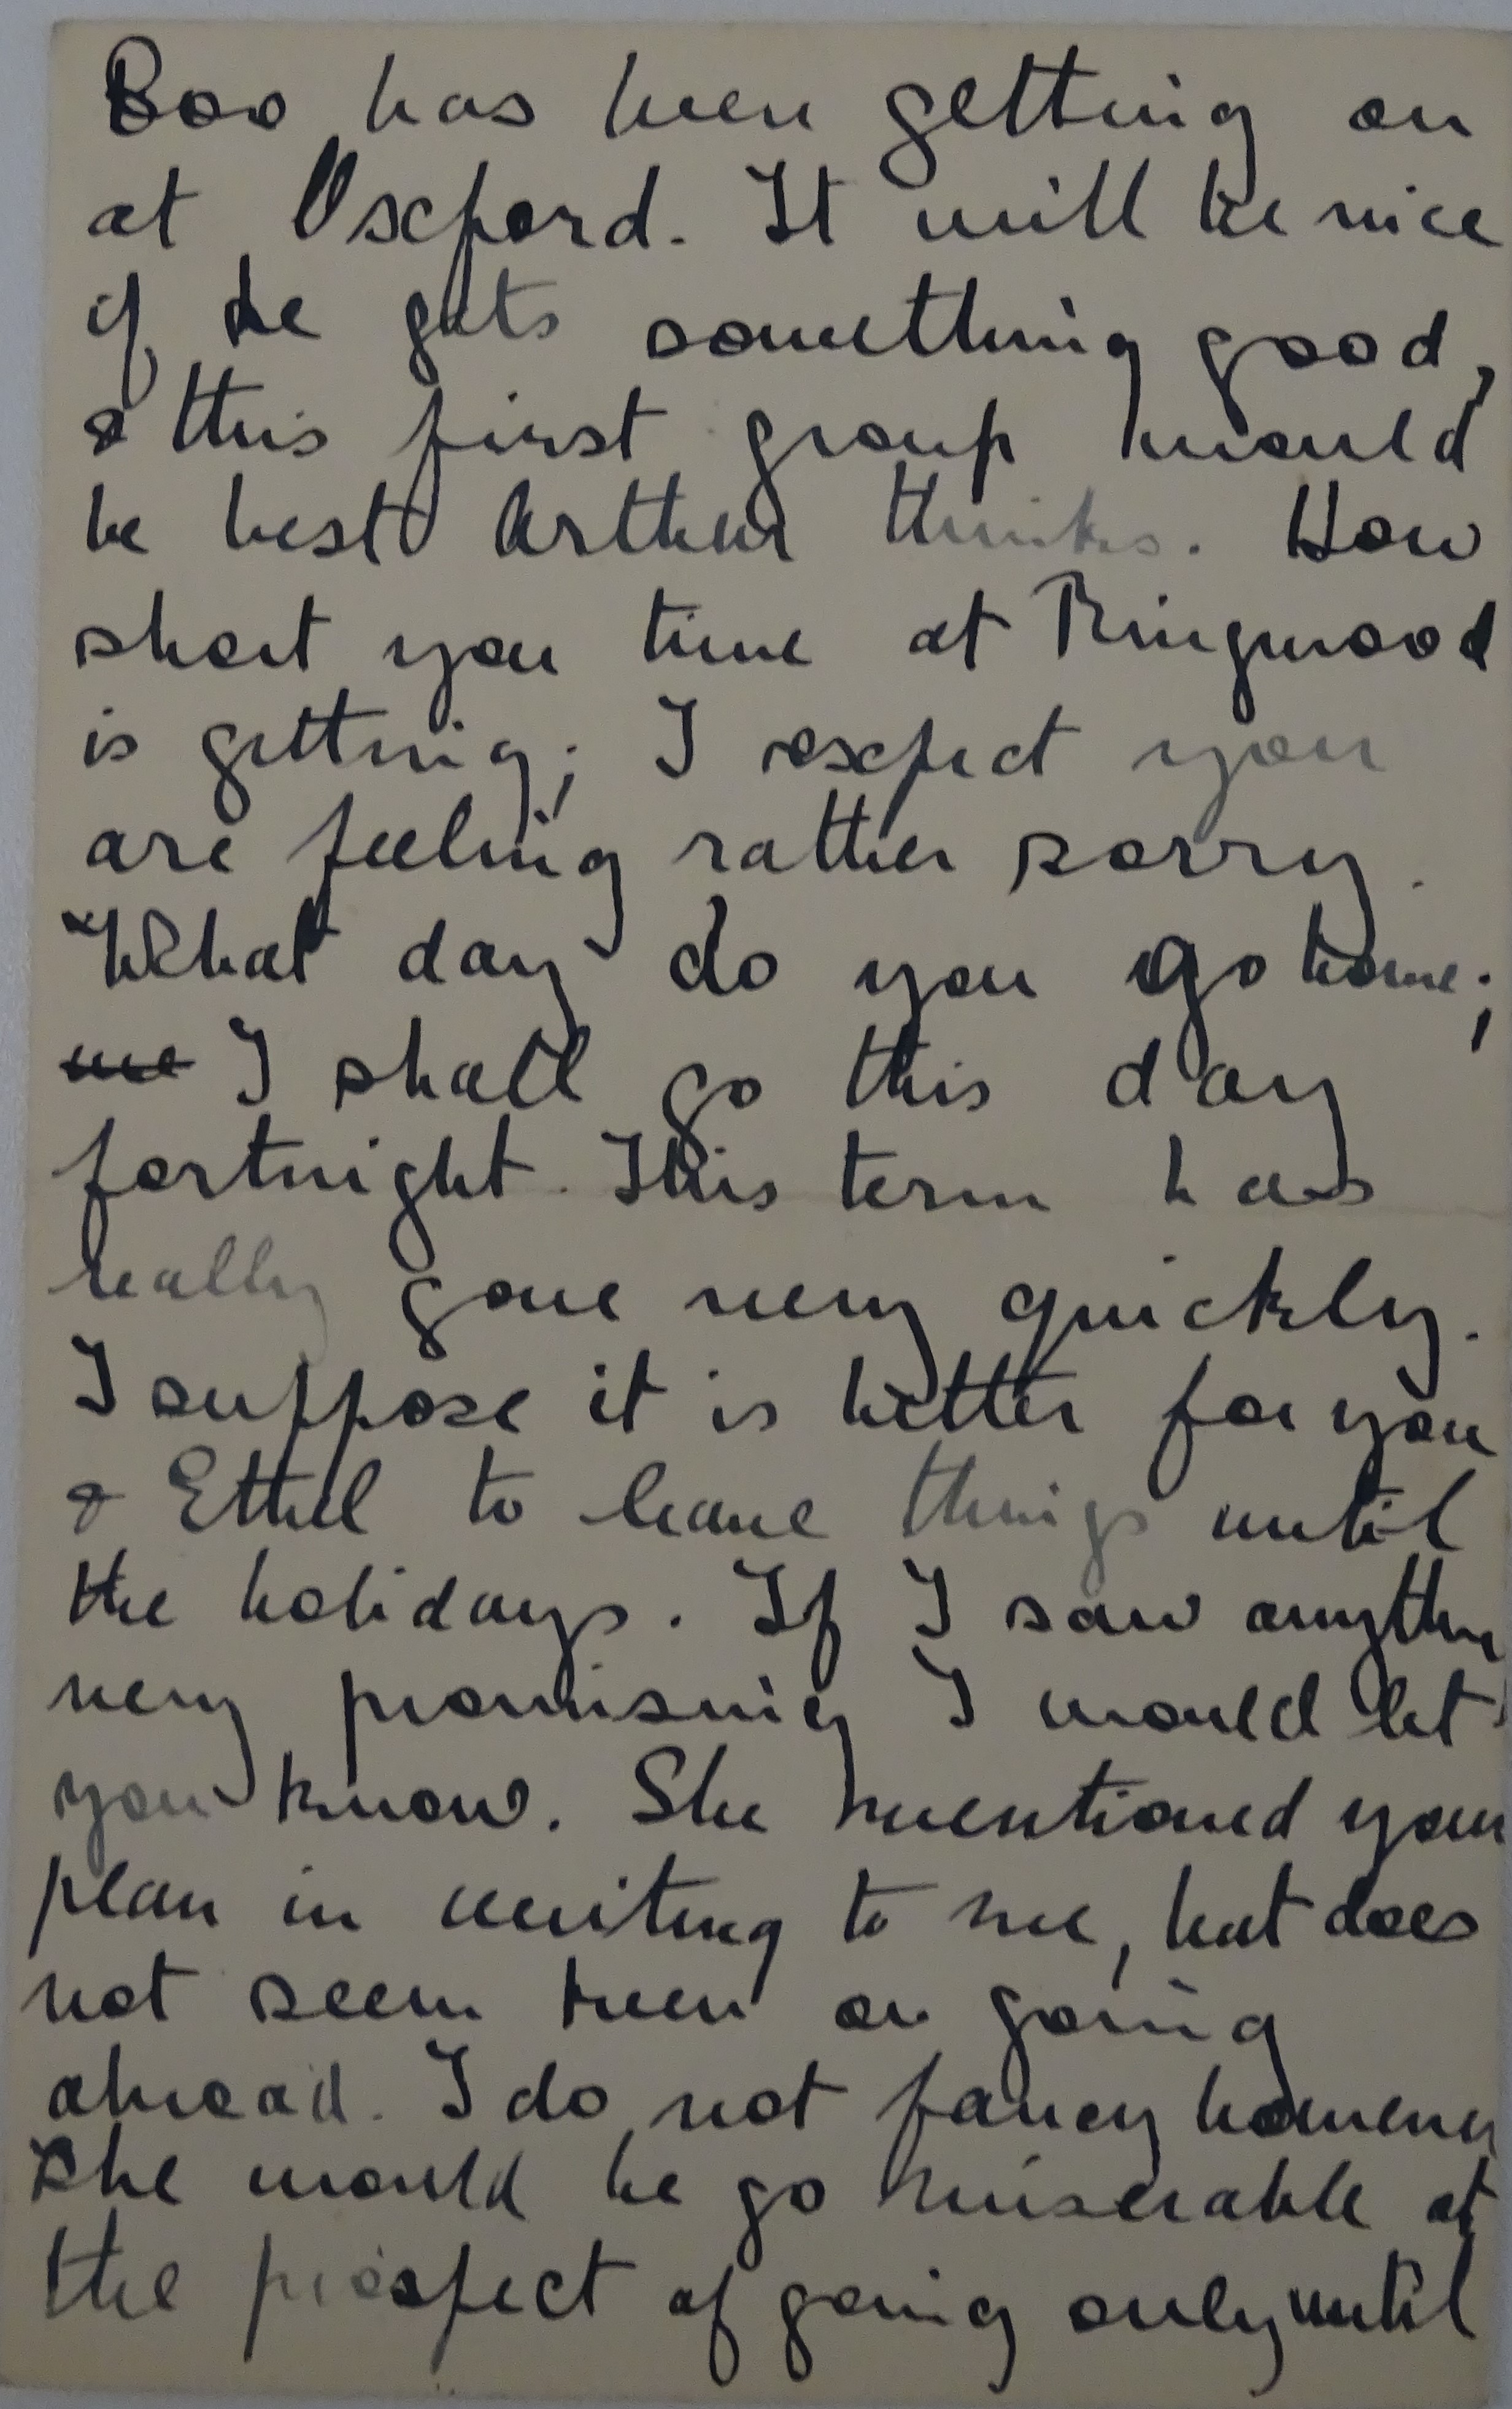 Boo has been getting on
at Oxford. It will be nice
if he gets something good,
& this first group would
be best Arthur thinks. How
short you time at Ringwood
is getting; I expect you
are feeling rather sorry.
What day do you go home;
me I shall go this day
fortnight. This term has
really gone very quickly.
I suppose it is better for you
& Ethel to leave things until
the holidays. If I saw anything
very promising I would let
you know. She mentioned your
plan in writing to me, but does
not seem keen on going
abroad. I do not fancy however
she would be go miserable at
the prospect of going only until